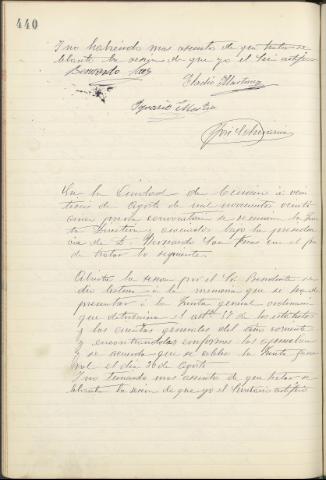 440
Y no habiendo mas asuntos de que tratar se
levantó la sesion de que yo el Sri certifico
Eladio Martinez
Ignacio
José Echegaray
En la Ciudad de á vein
tiseis de Agosto de mil novecientos veinti
cinco previa convocatoria se reunieron la Jun
ta Directiva y asociados bajo la presiden
cia de D. Bernardo en el fin
de tratar lo siguiente.
Abierta la sesion por el Sr. Presidente se
dió lectura á la memoria que se ha de
presentar á la Junta general ordinaria
que determina el artº 17 de los estatutos
y las cuentas generales del año corriente
y encontrandolas conformes las aprueban
y se acuerda que se celebre la Junta gene
ral el dia 30 de Agosto
Y no teniendo mas asuntos de que tratar se
levantó la sesion de que yo el Secretario certifico